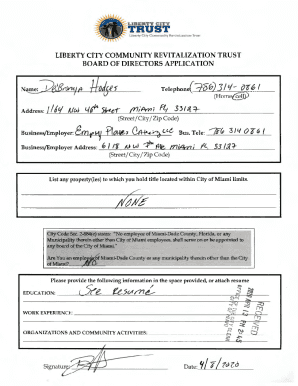 LIBERTY CITY
TRUST
Liberty City Community Revitalization Trust
LIBERTY CITY COMMUNITY REVITALIZATION TRUST
BOARD OF DIRECTORS APPLICATION
Name: DeBranya Hodges Telephone: (786) 314-0861
(Home/cell)
Address: 1164 NW 48th Street Miami FL 33127
(Street/City/Zip Code)
Business/Employer: Bus. Tele: 786 314 0861
Business/Employer Address: 6118 NW 7th Ave Miami FL 33127
(Street/City/Zip Code)
List any property(ies) to which you hold title located within City of Miami limits.
NONE
City Code Sec. 2-884(e) states: "No employee of Miami-Dade County, Florida, or any
Municipality therein other than City of Miami employees, shall serve on or be appointed to
any board of the City of Miami."
Are you an Employee of Miami-Dade County or any municipality therein other than the City
of Miami? NO
Please provide the following information in the space provided, or attach resume
EDUCATION: See Resumé
WORK EXPERIENCE:
ORGANIZATIONS AND COMMUNITY ACTIVITIES
RECEIVED
Signature: Date: 4/8/2020